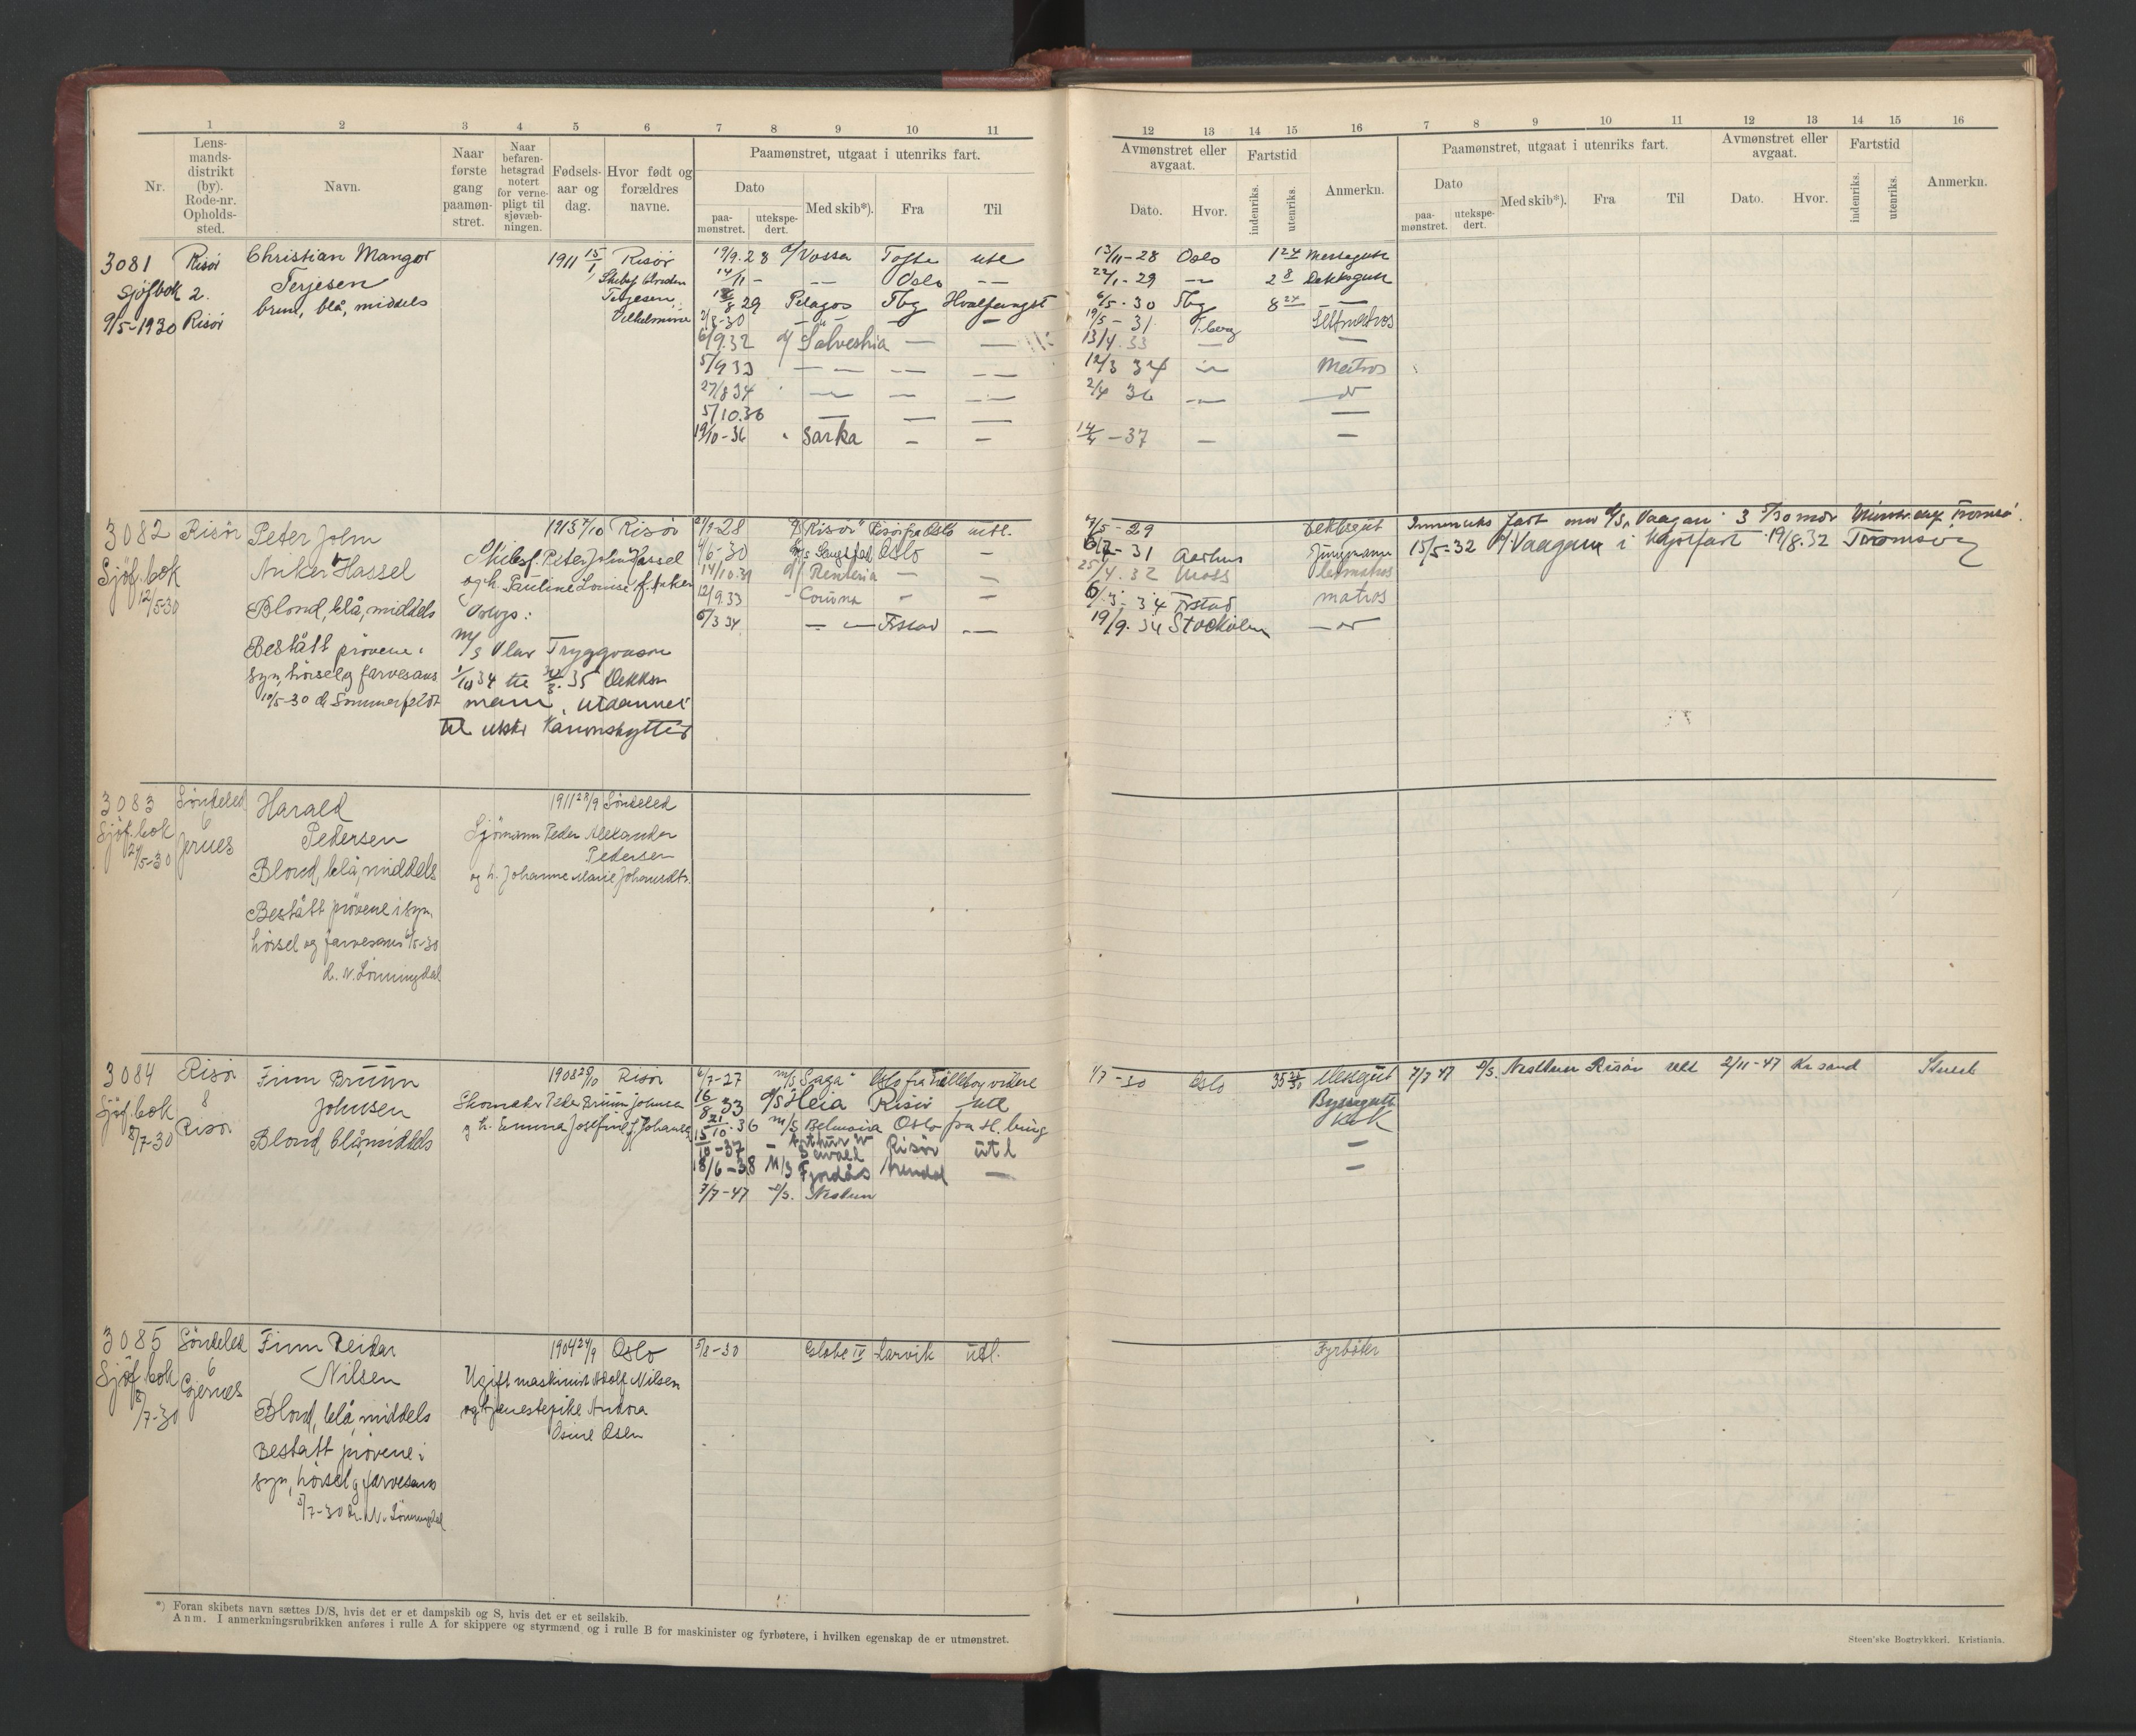 1 2 3 4 5 6 7 8 9 10 11
Nr.
Lens-
mands-
distrikt
(by).
Rode-nr.
Opholds-
sted.
Navn.
Naar
første
gang
paamøn-
stret.
Naar
befaren-
hetsgrad
notert
for verne-
pligt til
sjøvæb-
ningen.
Fødsels-
aar og
dag.
Hvor født og
forældres
navne.
Paamønstret, utgaat i utenriks fart.
Dato
paa-
mønstret.
utekspe-
dert.
Med skib*).
Fra
Til
12 13 14 15 16 7 8 9 10 11 12 13 14 15 16
Avmønstret eller
avgaat.
Dato.
Hvor.
Fartstid
indenriks.
utenriks.
Anmerkn.
Paamønstret, utgaat i utenriks fart.
Dato
paa-
mønstret.
utekspe-
dert.
Med skib*).
Fra
Til
Avmønstret eller
avgaat.
Dato.
Hvor.
Fartstid
indenriks.
utenriks.
Anmerkn.
3081 Risör Christian Mangor 1911 15/1 Risör
Sjöfbok 2. Terjesen
9/5-1930 Risör brun, blå, middels
Terjesen
Vilhelmine
19/9.28 Vossa Tofte utl 13/11-28 Oslo Messegutt
14/11 - — Oslo — 22/1-29 — Dekksgutt
29 Pelagos Tbg Hvalfangst 6/5-30 Tbg —
2/8-30 — — — 19/5-31 T.berg Lettmatros
6/9.32 Solveshia — — 13/4.33 — —
5/9 33 — — — 12/3 34 — Matros
27/8 34 — — — 2/4 36 — do
5/10.36 — — — —
19/10-36 Sarka — — 14/4-37 — —
3082 Risör Peter John 1913 7/10 Risör
Sjöf.bok Anker Hassel
12/5-30 Skibsf. Peter John Hassel
og h. Pauline Louise f. Anker
Blond, blå, middels
Bestått prövene i
syn, hörsel og farvesans
10/5-30 dr Sommerfeldt
M/S Olav Tryggvason
1/10 34 til 35 Dekks
mann, utdannet
til Kanonskytter
-28 "Risör" Risör fra Oslo utl. /5-29 Dekksgut
/6-30 Oslo — -31 Aarhus Jungmann
14/10.31 Renteria — — 25/4.32 Moss letmatros
12/9.33 - Coruna - — 34 Fr.stad matros
6/3 34 — — Frstad — 19/9.34 Stockholm — do
Innenriks fart med "Vaagan" 3 mdr Tromsö.
15/5-32 Vaagan i 19/8.32 Tromsö
3083 Söndeled Harald 1911 27/9 Söndeled
Sjöf.bok 6 Pedersen
24/5-30 Jernes
Sjömann Peder Alexander
Pedersen
og h. Johanne Marie Johansdtr.
Blond, blå, middels
Bestått prövene i syn,
hörsel og farvesans 6/5-30
dr. N. Lönningdal
3084 Risör Finn Bruun 1908 Risör
Sjöf.bok 8 Johnsen
8/7-30 Risör
Skomaker Peder Bruun Johnsen
og h. Emma Josefine f. Johansen
Blond, blå, middels
6/7-27 m/s "Saga" Oslo fra Lillebog videre 1/7-30 Oslo Messegut
16/8 33 d/s Heia Risör utl Byssegutt
21/10.36 m/s Belmoira Oslo fra H.burg Kok
15/10-37 - Arthur W Sewall Risör utl —
18/6-38 M/S Fjordås Arendal — —
7/7-47 D/S. Nesttun
7/7 47 D/S. Nesttun Risör utl 2/11-47 Kr.sand Stuert
3085 Söndeled Finn Reidar 1904 24/9 Oslo
Sjöf.bok 6 Nilsen
8/7-30 Gjernes
Ugift maskinist Adolf Nilsen
og tjenestepike Andora
Osine Osen
Blond, blå, middels
Bestått prövene i
syn, hörsel og farvesans
8/7-30 dr. N. Lönningdal
5/8-30 Globe IV Larvik utl. Fyrböter
*) Foran skibets navn sættes D/S, hvis det er et dampskib og S, hvis det er et seilskib.
Anm. I anmerkningsrubrikken anføres i rulle A for skippere og styrmænd og i rulle B for maskinister og fyrbøtere, i hvilken egenskap de er utmønstret.
Steen'ske Bogtrykkeri. Kristiania.